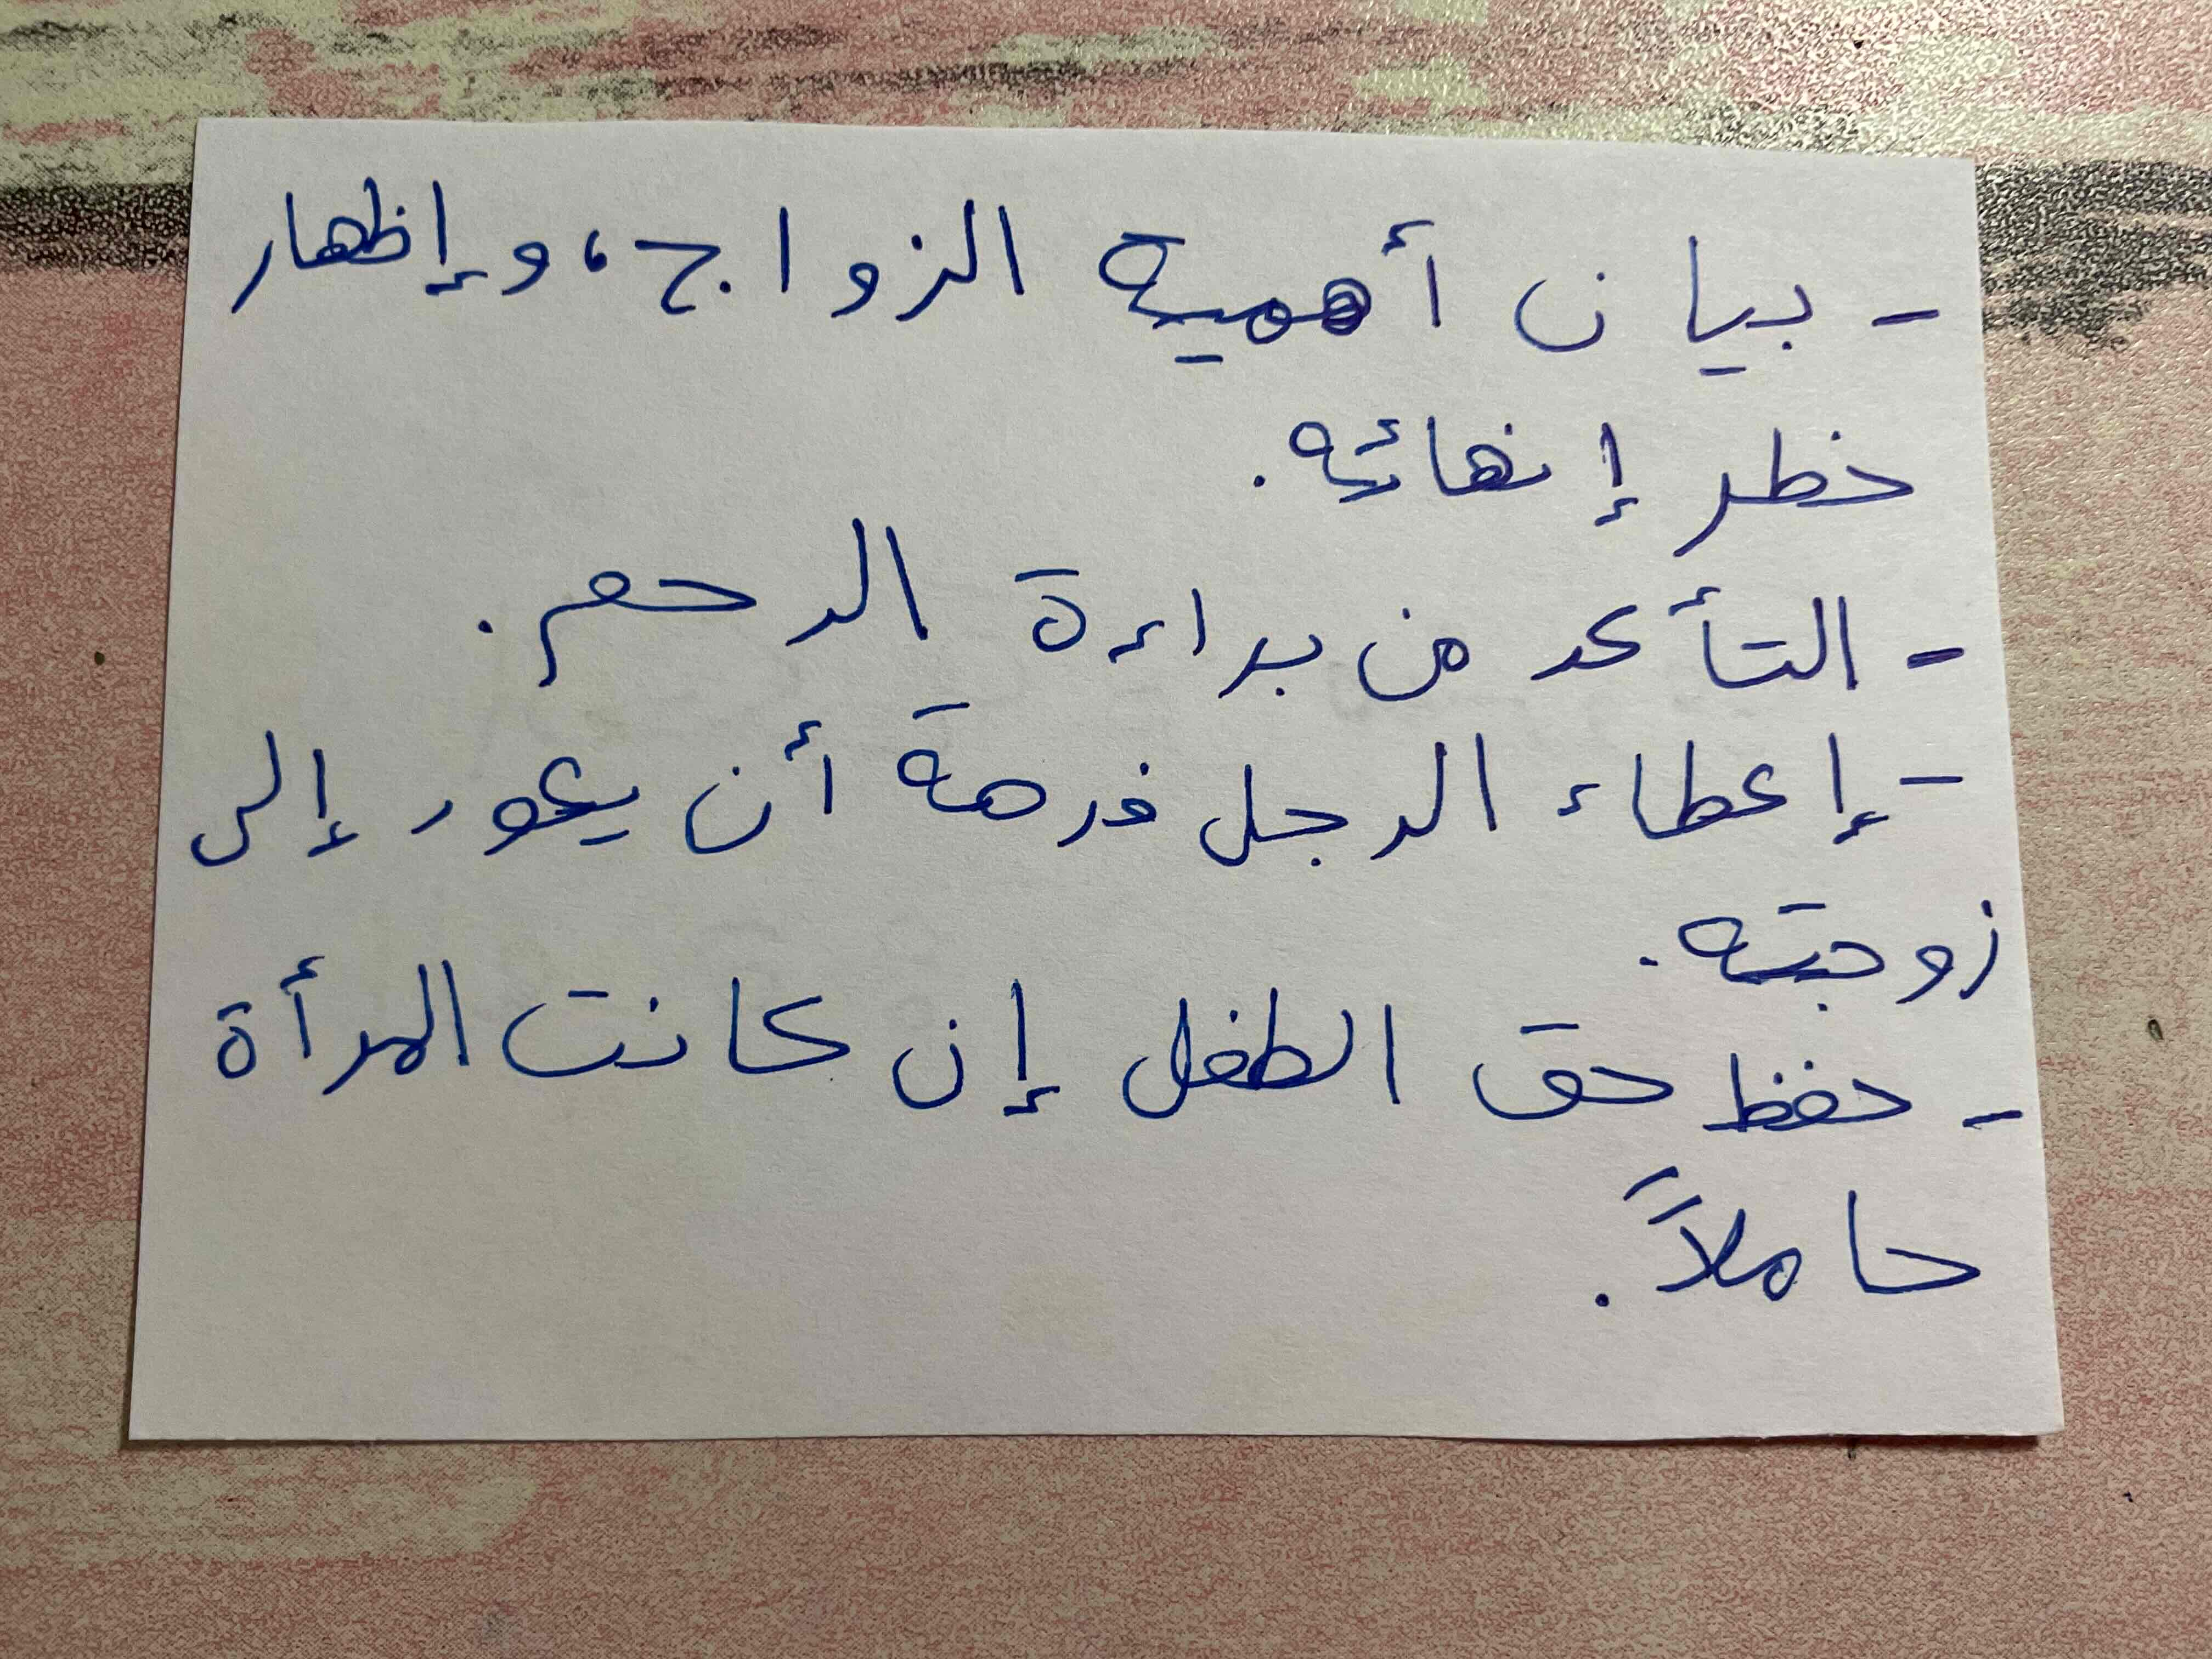 - بيان أهمية الزواج، وإظهار
خطر إنهائه.
- التأكد من براءة الرحم.
- إعطاء الرجل فرصة أن يعود إلى
زوجته.
- حفظ حق الطفل إن كانت المرأة
حاملاً.